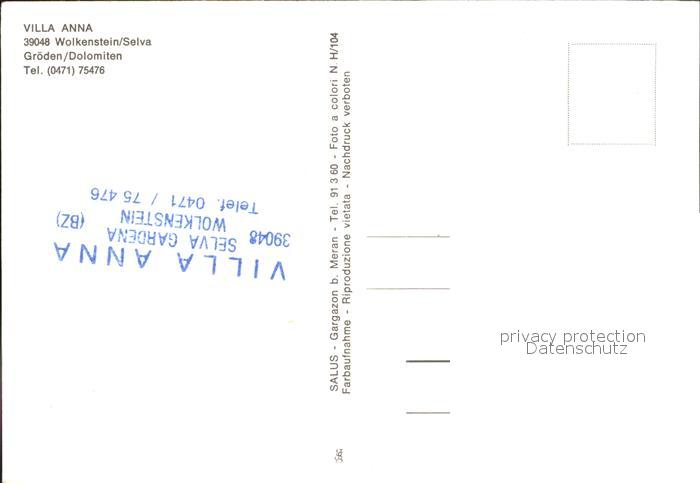 VILLA ANNA
39048 Wolkenstein/Selva
Gröden/Dolomiten
Tel. (0471) 75476
VILLA ANNA
39048 SELVA GARDENA
WOLKENSTEIN (BZ)
Telef. 0471 / 75 476
SALUS - Gargazon b. Meran - Tel. 91 3 60 - Foto a colori N. H/104
Farbaufnahme - Riproduzione vietata - Nachdruck verboten
privacy protection
Datenschutz